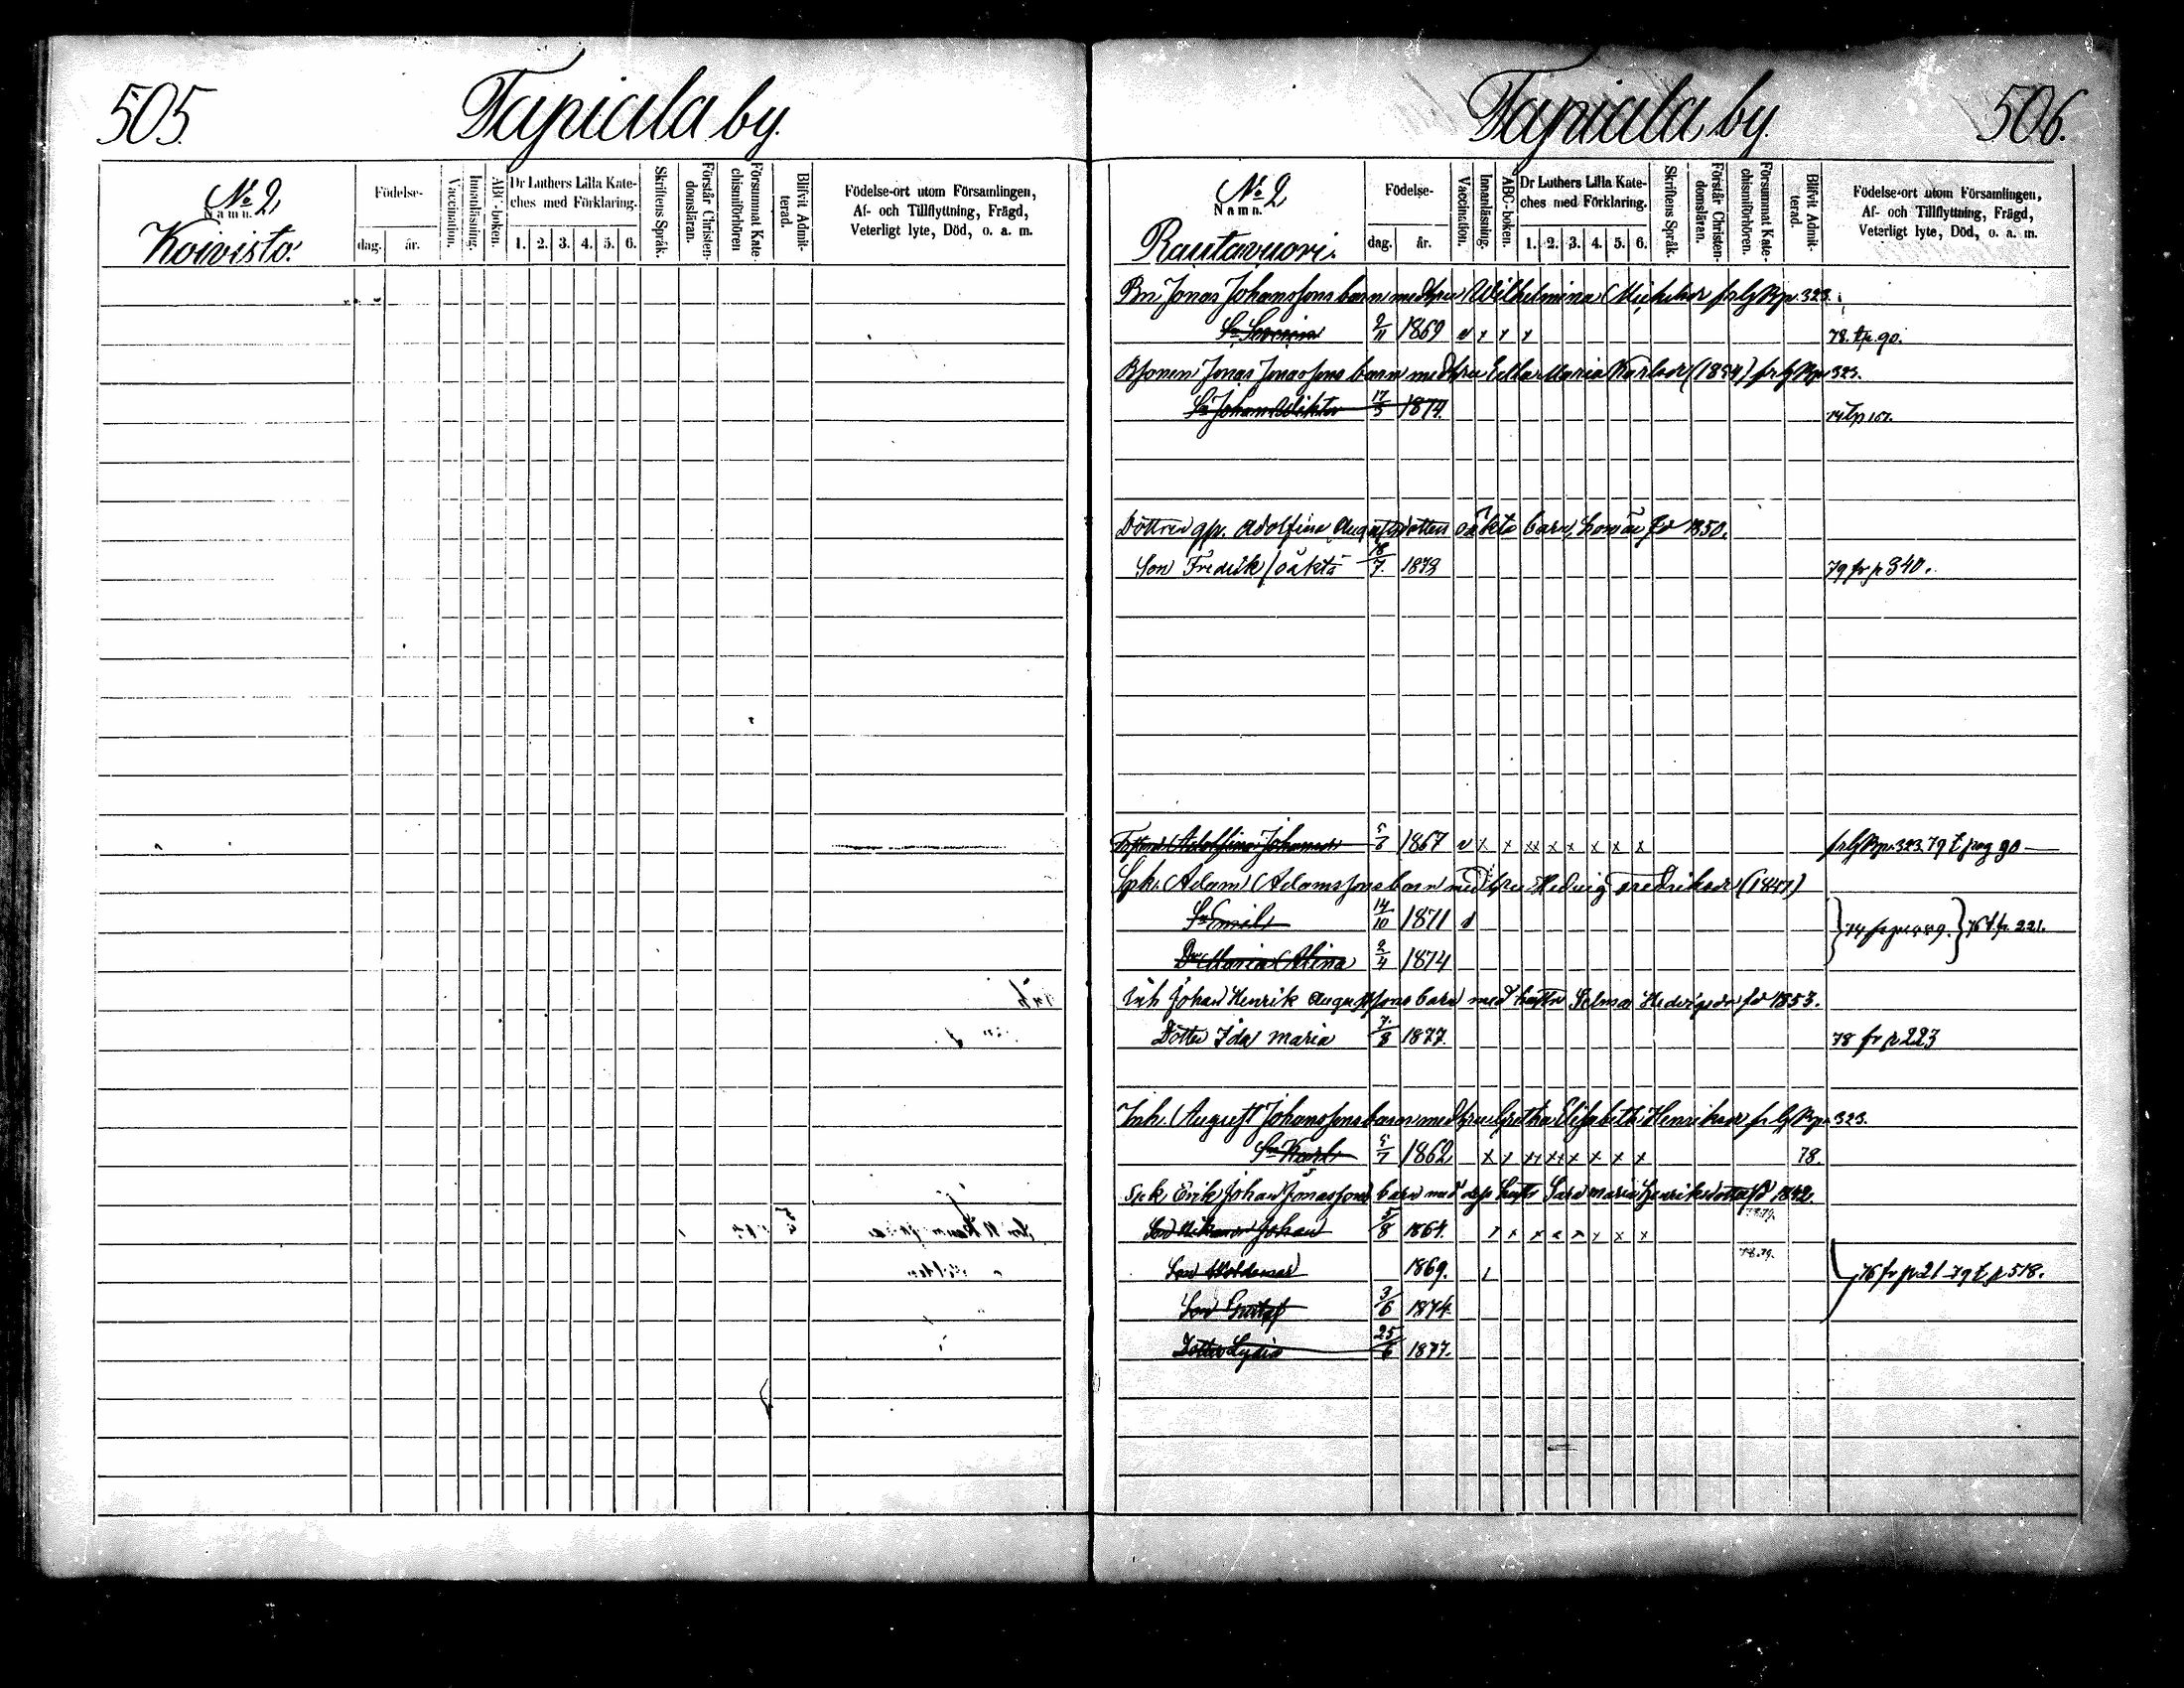 505.
Tapiala by.
No 2
Namn.
Koivisto.
Födelse-
dag.
år.
Vaccination.
Innanläsning.
ABC-boken.
Dr Luthers Lilla Kate-
ches med Förklaring.
1. 2. 3. 4. 5. 6.
Skriftens Språk.
Förstår Christen-
domsläran.
Försummat Kate-
chismiförhören
Blifvit Admit-
terad.
Födelse-ort utom Församlingen,
Af- och Tillflyttning, Frägd,
Veterligt lyte, Död, o. a. m.
Tapiala by.
506.
No 2
Namn.
Rautavuori.
Födelse-
dag.
år.
Vaccination.
Innanläsning.
ABC-boken.
Dr Luthers Lilla Kate-
ches med Förklaring.
1. 2. 3. 4. 5. 6.
Skriftens Språk.
Förstår Christen-
domsläran.
Försummat Kate-
chismiförhören.
Blifvit Admit-
terad.
Födelse-ort utom Församlingen,
Af- och Tillflyttning, Frägd,
Veterligt lyte, Död, o. a. m.
Bn. Jonas Johanssons barn med hru Wilhelmina Mickelsdr fr lg Bp. 323.
2/11 1869 v x x x 78. tp. 90.
Jonas Jonassons barn med hru Maria Karlsdr (1854) fr lg Bp 323.
Sn Johan Wiktor 17/5 1874.
Dottren Adolfina Augustsdotters oäkta barn, hon är fd 1850.
Son Fredrik / oäkta 18/7. 1879 79 fr p 340.
Adolfina Johansdr 5/6 1867 v x x xx x x x x x fr lg Bp. 323. 79 t pag 90
Adam Adamssons barn med hru Hedvig Fredriksdr (1847)
Sn Emil 14/10 1871 v
76 t p. 221.
Dr Maria Alina 2/4 1874
Inh Johan Henrik Augustssons barn med hustr Selma Hedvigsdr fd 1853.
Dotter Ida Maria 7./8 1877. 78 fr p 223
Inh. August Johanssons barn med hru Gretha Elisabeth Henriksdr fr lg Bp. 323.
Sn Karl 5/7 1862 x x xx xx x x x x 78.
Erik Johan Jonassons barn med dess hustr Sara Maria Henriksdotter fd 1842.
Son Nikanor Johan 5/8 1864. 78.79.
Son Woldemar 1869. 78.79. 76 fr p 21 79 t p 518.
Son Gustaf 3/6 1874.
Dotter Lydia 25/6 1877.